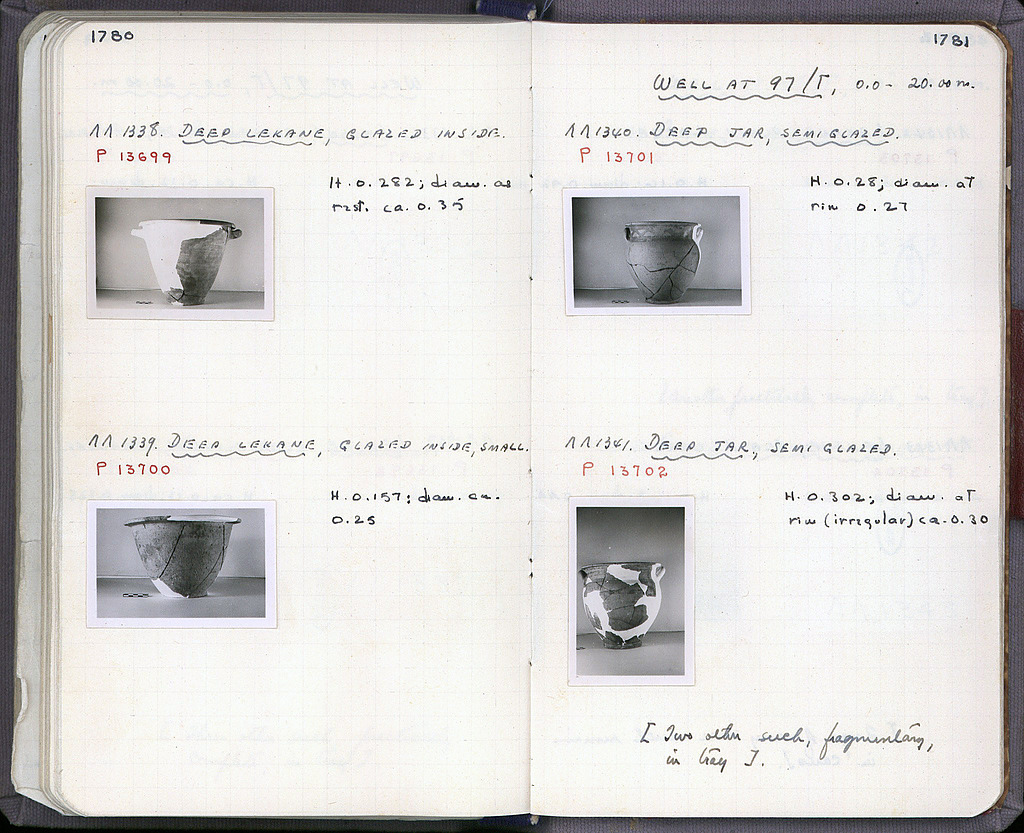 1780
ΛΛ 1338. DEEP LEKANE, GLAZED INSIDE.
P 13699
H. 0.282; diam. as
rest. ca. 0.35
ΛΛ 1339. DEEP LEKANE, GLAZED INSIDE, SMALL.
P 13700
H. 0.157; diam. ca.
0.25
1781
WELL AT 97/Γ, 0.0 - 20.00 m.
ΛΛ 1340. DEEP JAR, SEMIGLAZED.
P 13701
H. 0.28; diam. at
rim 0.27
ΛΛ 1341. DEEP JAR, SEMIGLAZED.
P 13702
H. 0.302; diam. at
rim (irregular) ca. 0.30
[ Two other such, fragmentary,
in tray ].